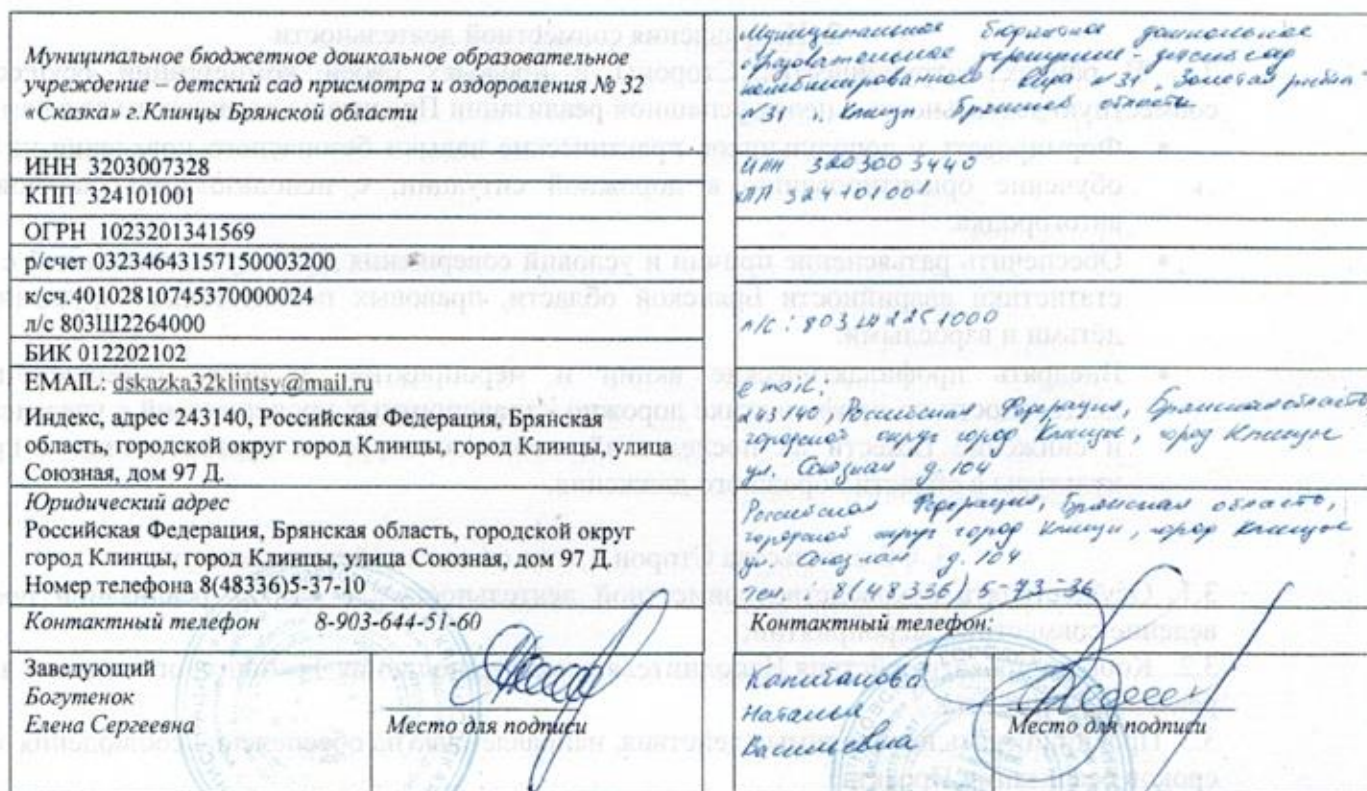 Муниципальное бюджетное дошкольное образовательное
учреждение – детский сад присмотра и оздоровления № 32
«Сказка» г.Клинцы Брянской области
ИНН 3203007328
КПП 324101001
ОГРН 1023201341569
р/счет 03234643157150003200
к/сч.40102810745370000024
л/с 803Ш2264000
БИК 012202102
EMAIL: dskazka32klintsy@mail.ru
Индекс, адрес 243140, Российская Федерация, Брянская
область, городской округ город Клинцы, город Клинцы, улица
Союзная, дом 97 Д.
Юридический адрес
Российская Федерация, Брянская область, городской округ
город Клинцы, город Клинцы, улица Союзная, дом 97 Д.
Номер телефона 8(48336)5-37-10
Контактный телефон 8-903-644-51-60
Заведующий
Богутенок
Елена Сергеевна
Место для подписи
Муниципальное бюджетное дошкольное
образовательное учреждение - детский сад
комбинированного вида №31 „Золотая рыбка"
№31 г. Клинцы Брянской области
ИНН 3203003440
e-mail:
243140, Российская Федерация, Брянская область
городской округ город Клинцы, город Клинцы
ул. Союзная д. 104
Российская Федерация, Брянская область,
городской округ город Клинцы, город Клинцы
ул. Союзная д. 104
тел.: 8(48336) 5-73-36
Контактный телефон:
Капитанова
Наталья
Место для подписи